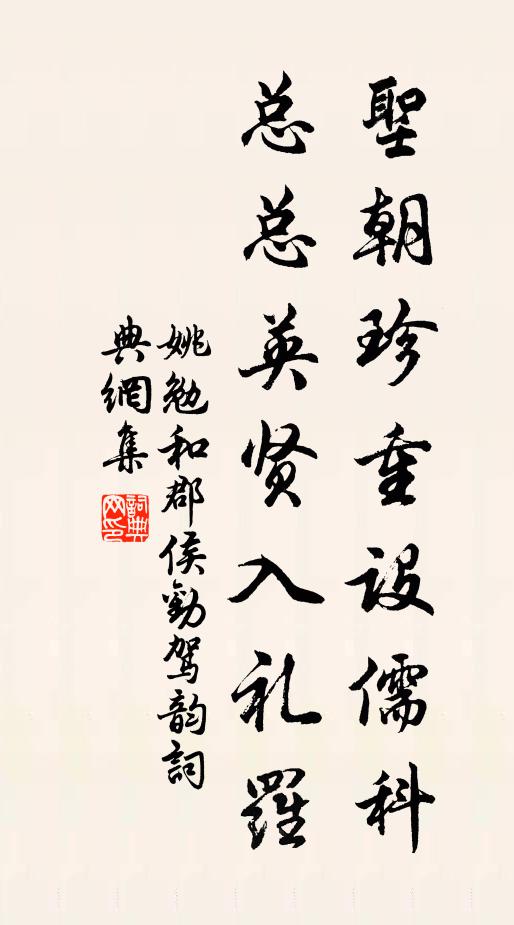 聖朝珍重設儒科
总总英贤入礼羅
姚勉和郡侯勸駕韵詞
典網集
詞典网印